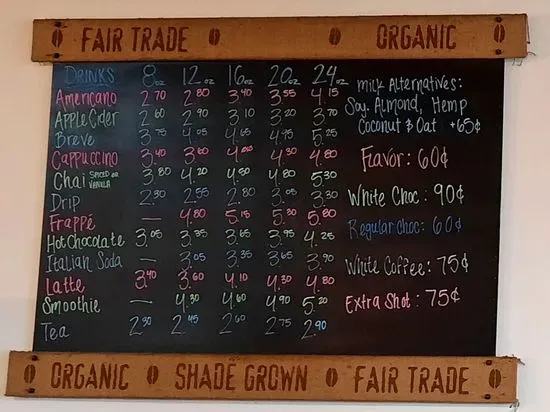 FAIR TRADE ORGANIC
DRINKS 8oz 12oz 16oz 20oz 24oz
Americano 2.70 2.80 3.40 3.55 4.15
Apple Cider 2.60 2.90 3.10 3.20 3.70
Breve 3.75 4.05 4.65 4.95 5.25
Cappuccino 3.40 3.60 4.30 4.80
Chai SPICED or VANILLA 3.80 4.20 4.80 5.30
Drip 2.30 2.55 2.80 3.05 3.30
Frappé — 4.80 5.15 5.30 5.80
Hot Chocolate 3.05 3.35 3.65 3.95 4.25
Italian Soda — 3.05 3.35 3.65 3.90
Latte 3.40 3.60 4.10 4.30 4.80
Smoothie — 4.30 4.60 4.90 5.20
Tea 2.30 2.45 2.60 2.75 2.90
Milk Alternatives:
Soy, Almond, Hemp
Coconut & Oat +65¢
Flavor: 60¢
White Choc: 90¢
Regular Choc: 60¢
White Coffee: 75¢
Extra Shot: 75¢
ORGANIC SHADE GROWN FAIR TRADE